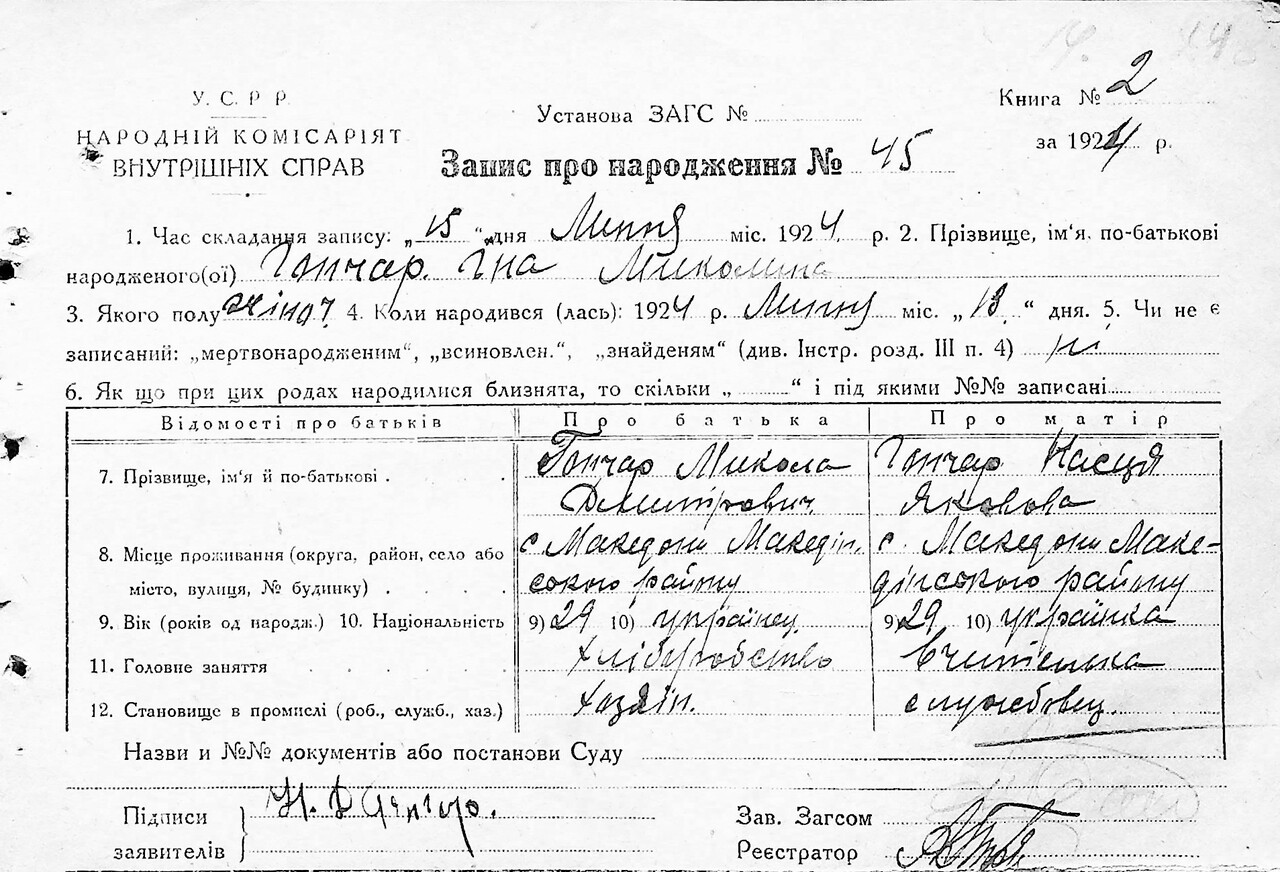 У. С. Р. Р.
НАРОДНІЙ КОМІСАРІЯТ
ВНУТРІШНІХ СПРАВ
Установа ЗАГС №
Книга № 2
за 1924 р.
Запис про народження № 45
1. Час складання запису: „15“ дня Липня міс. 1924 р. 2. Прізвище, ім'я, по-батькові
народженого(ої) Гончар Іна Миколина
3. Якого полу жіноч 4. Коли народився (лась): 1924 р. Липня міс. „13“ дня. 5. Чи не є
записаний: „мертвонародженим“, „всиновлен.“, „знайденям“ (див. Інстр. розд. III п. 4) ні
6. Як що при цих родах народилися близнята, то скільки „ “ і під якими №№ записані
Відомості про батьків Про батька Про матір
7. Прізвище, ім'я й по-батькові . Гончар Микола Гончар Насця
Дмитрович Яковова
8. Місце проживання (округа, район, село або с Македони Македін. с. Македони Маке-
місто, вулиця, № будинку) . . . . ського району дінського району
9. Вік (років од народж.) 10. Національність 9) 29 10) українец. 9) 29 10) українка
11. Головне заняття . . . . . хліборобство Вчителька
12. Становище в промислі (роб., служб., хаз.) хозяїн. службовец.
Назви и №№ документів або постанови Суду
Підписи
заявителів
Зав. Загсом
Реєстратор